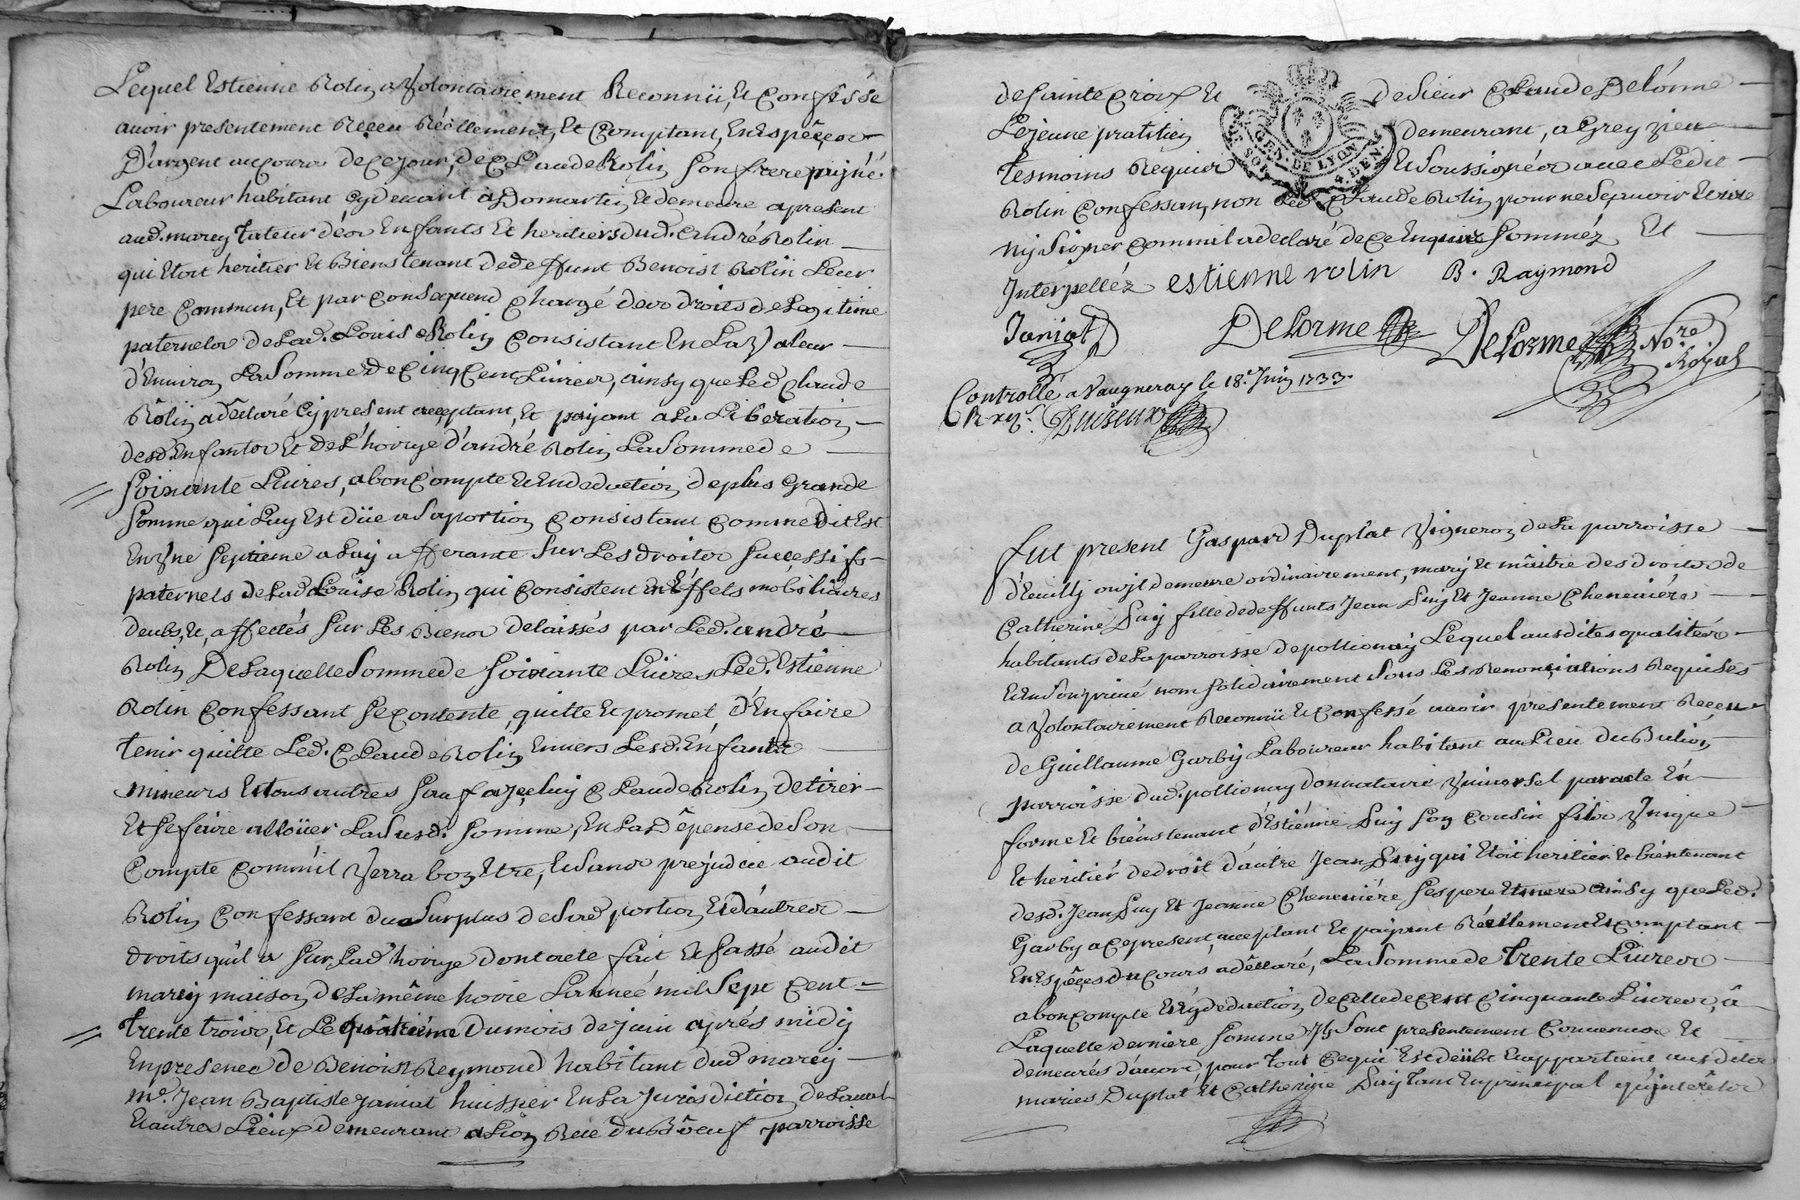 Lequel Estienne Rolin a Volontairement Reconnü, Et Confessé
avoir presentement Receu Réellement, Et Comptant, En Espéces
D'argent au Cours de Ce jour, de Claude Rolin Son frere paisné
Laboureur habitant Cydevant à Domartin Et demeure apresent
aud. marcy tuteur dés Enfants Et heritiers dud. André Rolin
qui Etoit heritier Et Bienstenant de deffunt Benoist Rolin Leur
pere Commun, Et par Consequend Chargé des droits de Legitime
paternelos de Lad. Louise Rolin Consistant En La Valeur
d'Environ La Somme De Cinq Cent Livres, ainsy que Led. Claude
Rolin a déclaré Cy present acceptant, Et payant a La Liberation
desd. Enfants Et de L'hoirye d'andré Rolin La Somme de
Soixante Livres, a bon Compte Et En deduction de plus Grande
Somme qui Luy Est düe a Sa portion Consistant Comme Dit Est
En Une Septieme a Luy afferante Sur Les droits Successifs
paternels de Lad. Louise Rolin qui Consistent en Effets mobiliaires
deubs, Et, affectés Sur Les Biens delaissés par Led. andré
Rolin De Laquelle Somme de Soixante Livres Led. Estienne
Rolin Confessant Se Contente, quitte Et promet, d'En faire
tenir quitte Led. Claude Rolin Envers Lesd. Enfants
mineurs Et tous autres Sauf a Jceluy Claude Rolin de tirer
Et Se faire alloüer La Susd. Somme, En La Dépense de Son
Compte Comm'il Verra bon Etre, Et Sans prejudice audit
Rolin Confessant du Surplus de Sad. portion Et d'autres
droits qu'il a Sur Lad. hoirye dont acte fait Et passé audit
marcy maison de La même hoirie L'année mil Sept Cent
trente trois, Et Le quatriéme du mois de juin aprés midy
En presence de Benoist Reymond habitant dud. marcy
me. Jean Baptiste Janiat huissier En La Jurisdiction de Laval
Et autres Lieux demeurant a Lion Rüe du Bœuf parroisse
de Sainte Croix Et de Sieur Claude Delorme
Lejeune pratitien demeurant, a Grey zieu
GEN. DE LYON
tesmoins Requis Et Soussignés avec Ledit
Rolin Confessant, non Led. Claude Rolin pour ne Sçavoir Ecrire
ny Signer Comm'il a declaré de Ce Enquis Sommés Et
Interpellés estienne rolin B. Raymond
Janiat Delorme Delorme Nore Royal
Controllé a Vaugneray le 18e. Juin 1733.
fut present Gaspard Duplat Vigneron de La parroisse
d'Eeuilly ou jl demeure ordinairement, mary Et mâitre des droits de
Catherine Luy fille de deffunts Jean Luy Et Jeanne Cheneviére
habitants de La parroisse de pollionay Lequel ausdites qualités
Et En Son privé nom Solidairement Sous Les Renonciations Requises
a Volontairement Reconnü Et Confessé avoir presentement Receu
de Guillaume Garby Laboureur habitant au Lieu du Bulion
parroisse dud. pollionay donnataire Vniversel par acte En
forme Et biénstenant d'Estiénne Luy Son Cousin fils Vnique
Et heritiér de droit d'autre Jean Luy qui Etoit heritier Et biéntenant
desd. Jean Luy Et Jeanne Cheneviére Ses pere Et mere ainsy que Led.
Garby a Ce present, acceptant Et payant Réellement Et Comptant
En Espéces du Cours a déclaré, La Somme de trente Livres
a bon Compte Et En deduction de Celle de Cent Cinquante Livres, â
Laquelle derniere Somme Jls Sont presentement Convenus Et
demeurés d'accord, pour tout Ce qui Est deübt Et appartient ausdits
mariés Duplat Et Catherine Luy tant En principal qu'jnteréts